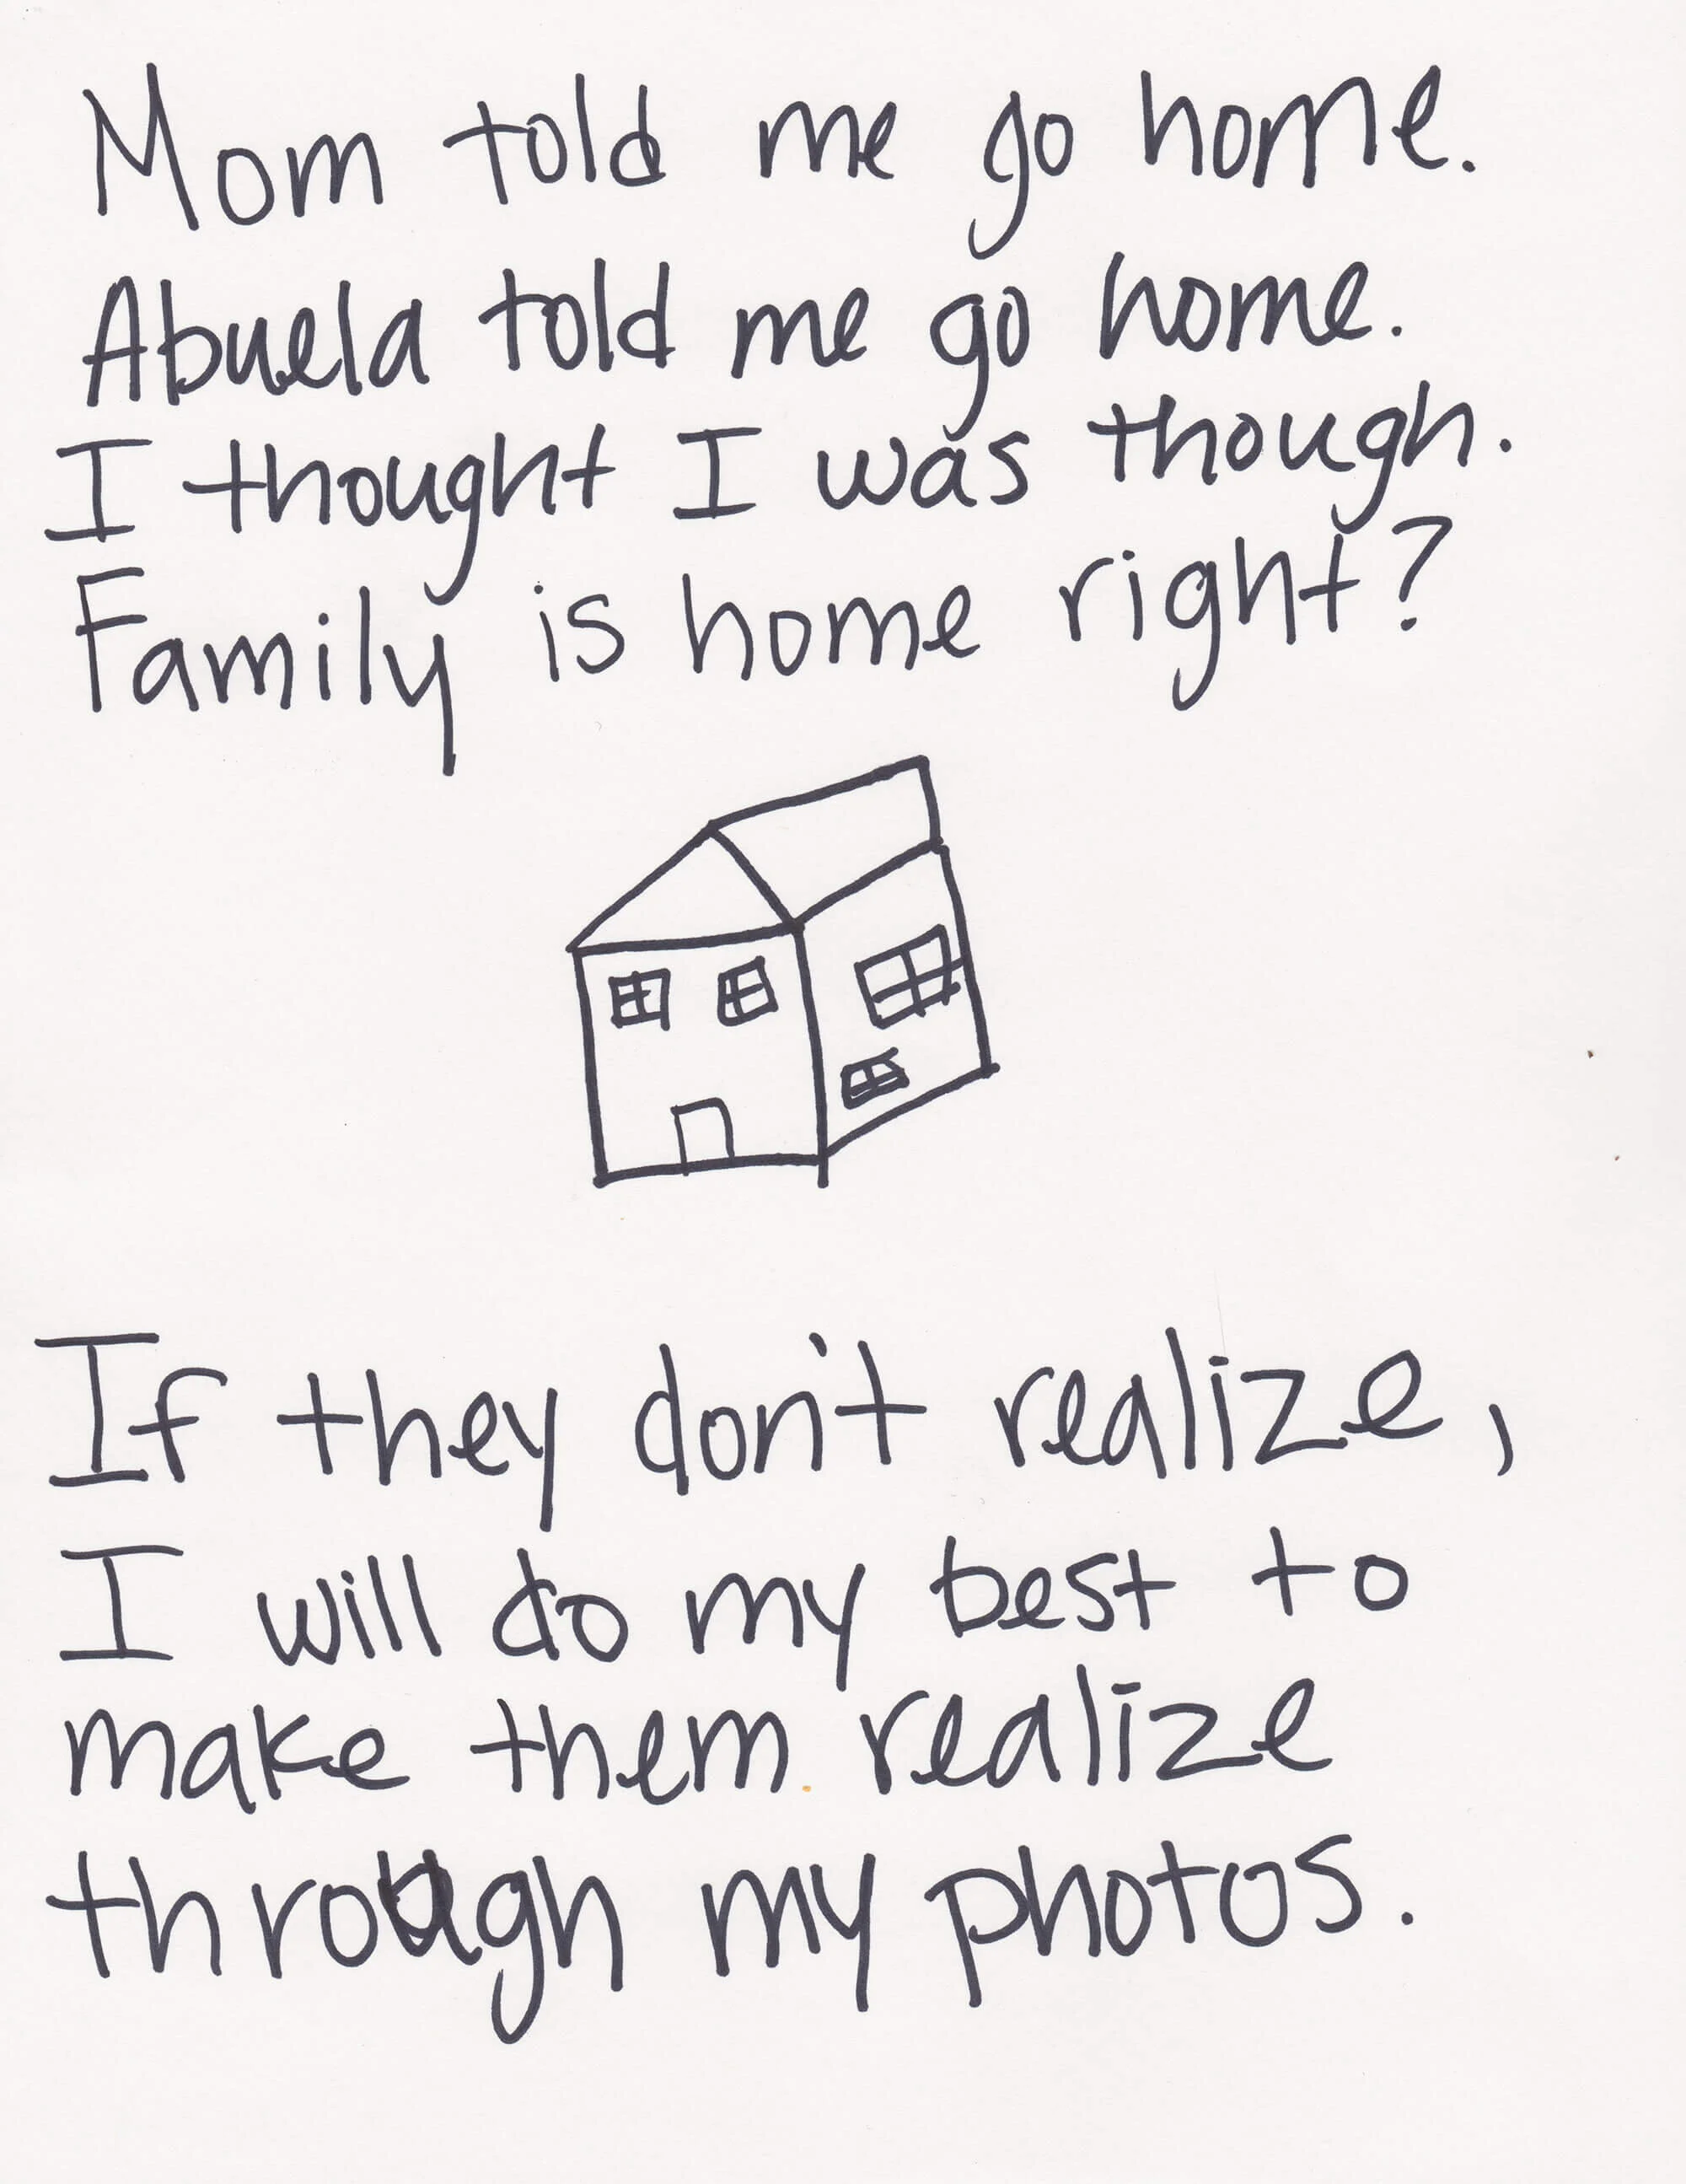 Mom told me go home.
Abuela told me go home.
I thought I was though.
Family is home right?
If they don't realize,
I will do my best to
make them realize
through my photos.